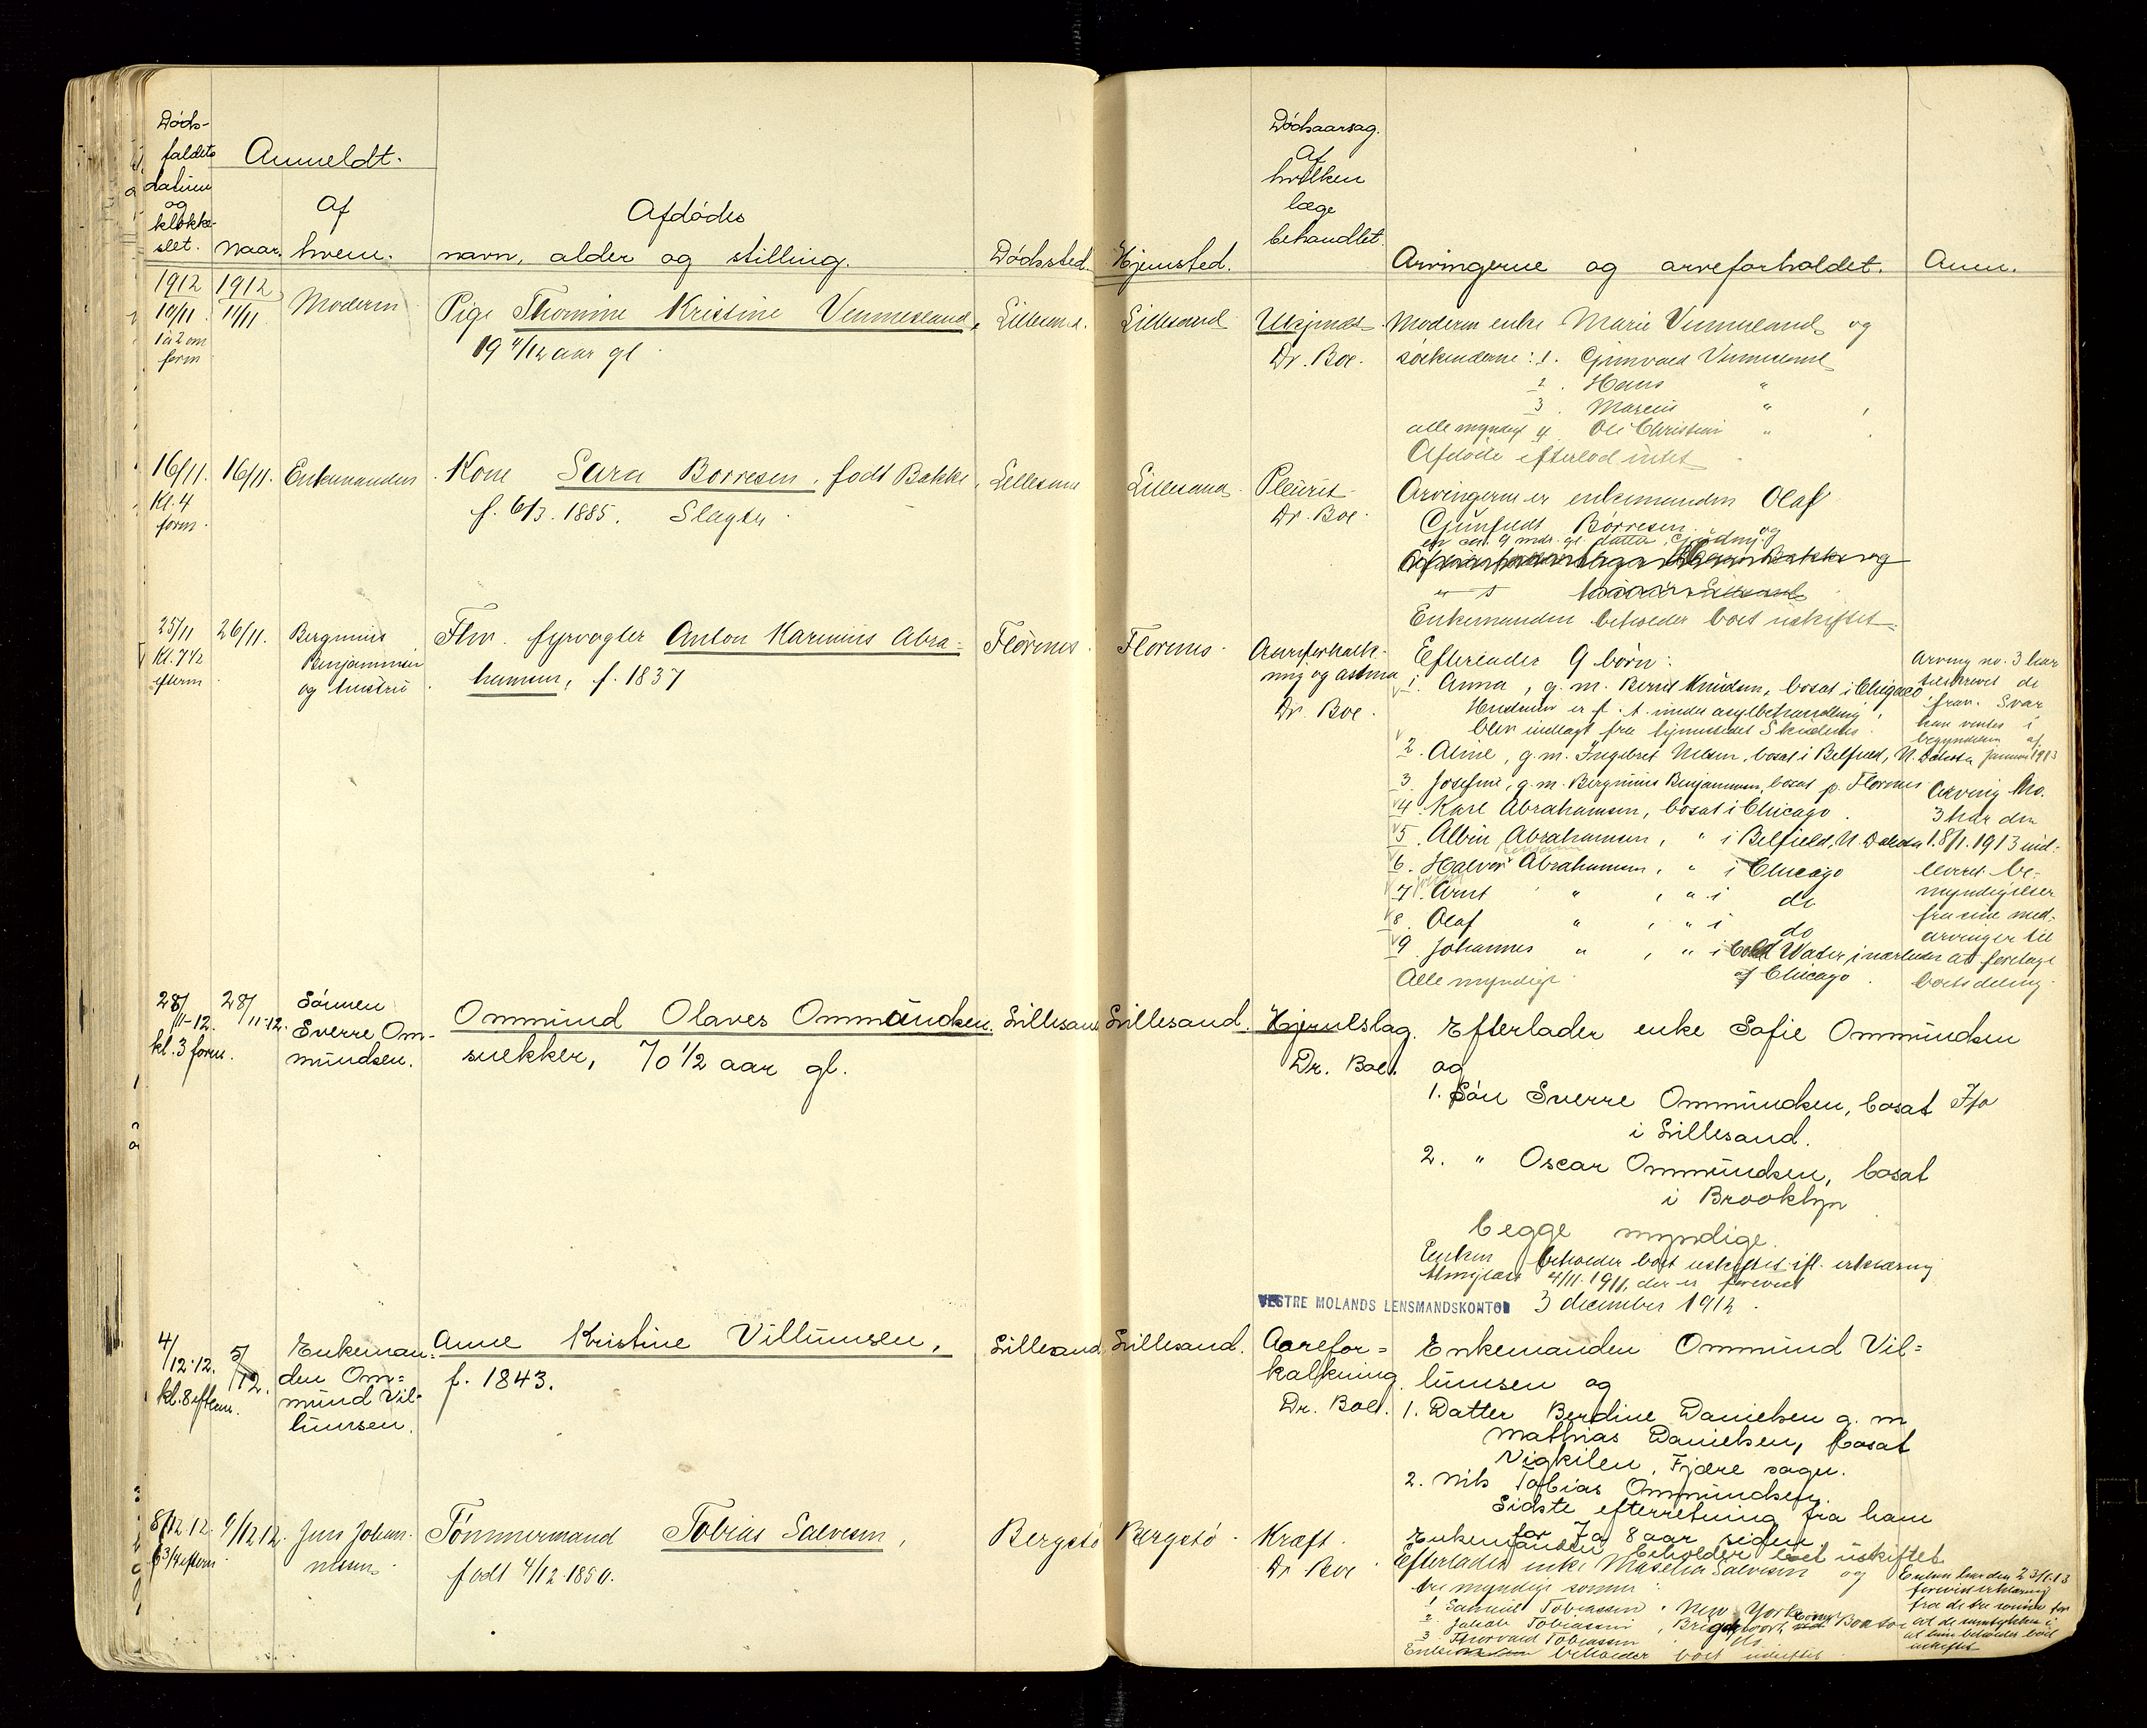 Døds-
faldets
datum
og
klokke-
slet.
Anmeldt.
naar.
af
hvem.
Afdødes
navn, alder og stilling.
Dødssted.
Hjemsted.
Dødsaarsag.
Af
hvilken
læge
behandlet.
Arvingerne og arveforholdet.
Anm.
1912
1912
10/11.
11/11.
1 à 2 om
form
Moderen
Pige Thomine Kristine Vennesland,
19 4/12 aar gl.
Lillesand.
Lillesand
Ukjendt.
Dr. Boe.
Moderen enke Marie Vennesland og
søskenderne: 1. Gunvald Vennesland
2. Hans "
3. Marius "
alle myndige 4. Ole Christian "
Afdøde efterlod intet
16/11.
Kl. 4
form.
16/11.
Enkemanden
Kone Sara Borresen, født Bakke,
f. 6/3. 1885. Slagter
Lillesand
Lillesand
Pleurit
Dr. Boe.
Arvingerne er enkemanden Olaf
Børresen og
en ca. 9 mdr. gl. datter
Enkemanden beholder boet uskiftet.
25/11
Kl. 7 1/2
efterm
26/11.
Berginius
Benjaminsen
og hustru.
Fhv. fyrvogter Anton Karinius Abra=
hamsen, f. 1837
Florenes.
Florenes.
Aareforkalk-
ning og astma
Dr. Boe.
Efterlader 9 børn:
1. Anna, g. m. Bernt Knudsen, bosat i Chicago
Hustruen er f. t. under asylbehandling,
blev indlagt fra hjemstedet
2. Aline, g. m. Ingebret Nilsen, bosat i Belfield, N. Dakota
3. Josefine, g. m. Bergинius Benjaminsen, bosat p. Florenes
4. Karl Abrahamsen, bosat i Chicago.
5. Albin Abrahamsen, " i Belfield, N. Dakota
6. Halvor Abrahamsen, " i Chicago
7. Arnt " , " i do
8. Olaf " , " i do
9. Johannes " , " i Cold Water, i nærheden
af Chicago.
Alle myndige.
Arving no. 3 har
tilskrevet de
frav. Svar
kan ventes i
begyndelsen af
januar 1913
Arving No.
3 har den
18/1. 1913 ind-
leveret be-
myndigelser
fra sine med-
arvinger til
at foretage
bortdeling.
28/
11-12.
kl. 3 form.
28/
11-12.
Sønnen
Sverre Om-
mundsen.
Ommund Olaves Ommundsen.
snekker, 70 1/2 aar gl.
Lillesand
Lillesand.
Hjerteslag.
Dr. Boe.
Efterlader enke Sofie Ommundsen
og
1. Søn Sverre Ommundsen, bosat
i Lillesand.
2. " Oscar Ommundsen, bosat
i Brooklyn
begge myndige.
Enken beholder boet uskiftet ifl. erklæring
4/11. 1911, der er forevist
VESTRE MOLANDS LENSMANDSKONTOR 3 december 1912.
4/
12-12.
kl. 8 efterm.
5/
12.
Enkeman-
den Om=
mund Vil-
lumsen.
Anne Kristine Villumsen,
f. 1843.
Lillesand
Lillesand.
Aarefor=
kalkning.
Dr. Boe.
Enkemanden Ommund Vil=
lumsen og
1. Datter Berdine Danielsen g. m
Mathias Danielsen, bosat
Vigkilen, Fjære sogn.
2. Nils Tobias Ommundsen.
Sidste efterretning fra ham
for 7 a 8 aar siden.
Enkemanden beholder boet uskiftet
8/12 12.
6 3/4 efterm.
9/12 12.
Jens Johan-
nesen
Tømmermand Tobias Salvesen,
født 4/12. 1850.
Bergstø
Bergstø.
Kræft.
Dr Boe.
Efterlader enke Salvesen og
tre myndige sønner:
1 Samuel Tobiassen, New York
2 Jakob Tobiassen, Boston
3 Thorvald Tobiassen do
Enken beholder boet uskiftet.
Enken har den 23/1. 13
forevist erklæring
fra de tre sønner for
at de samtykker i
at hun beholder boet
uskiftet